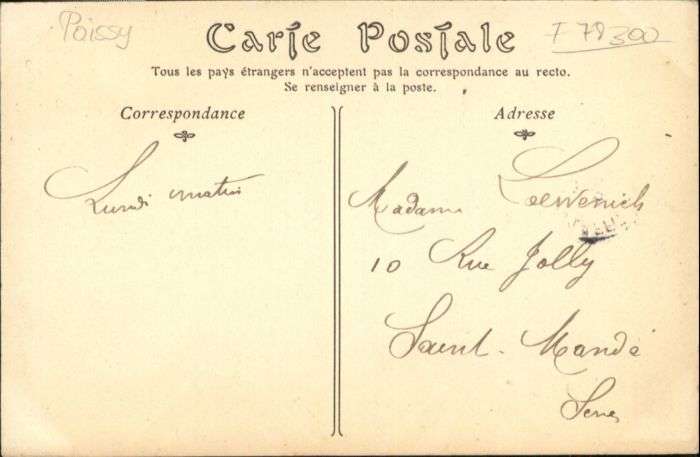 Poissy
F 78300
Carte Postale
Tous les pays étrangers n'acceptent pas la correspondance au recto.
Se renseigner à la poste.
Correspondance
Adresse
Lundi matin
Madame
10 Rue Jolly
Saint-Mandé
Seine